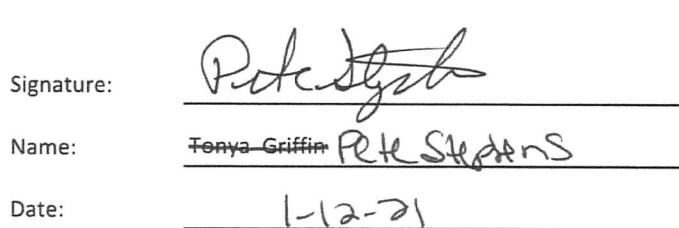 Signature: Pete Stephens
Name: Tonya Griffin Pete Stephens
Date: 1-12-21